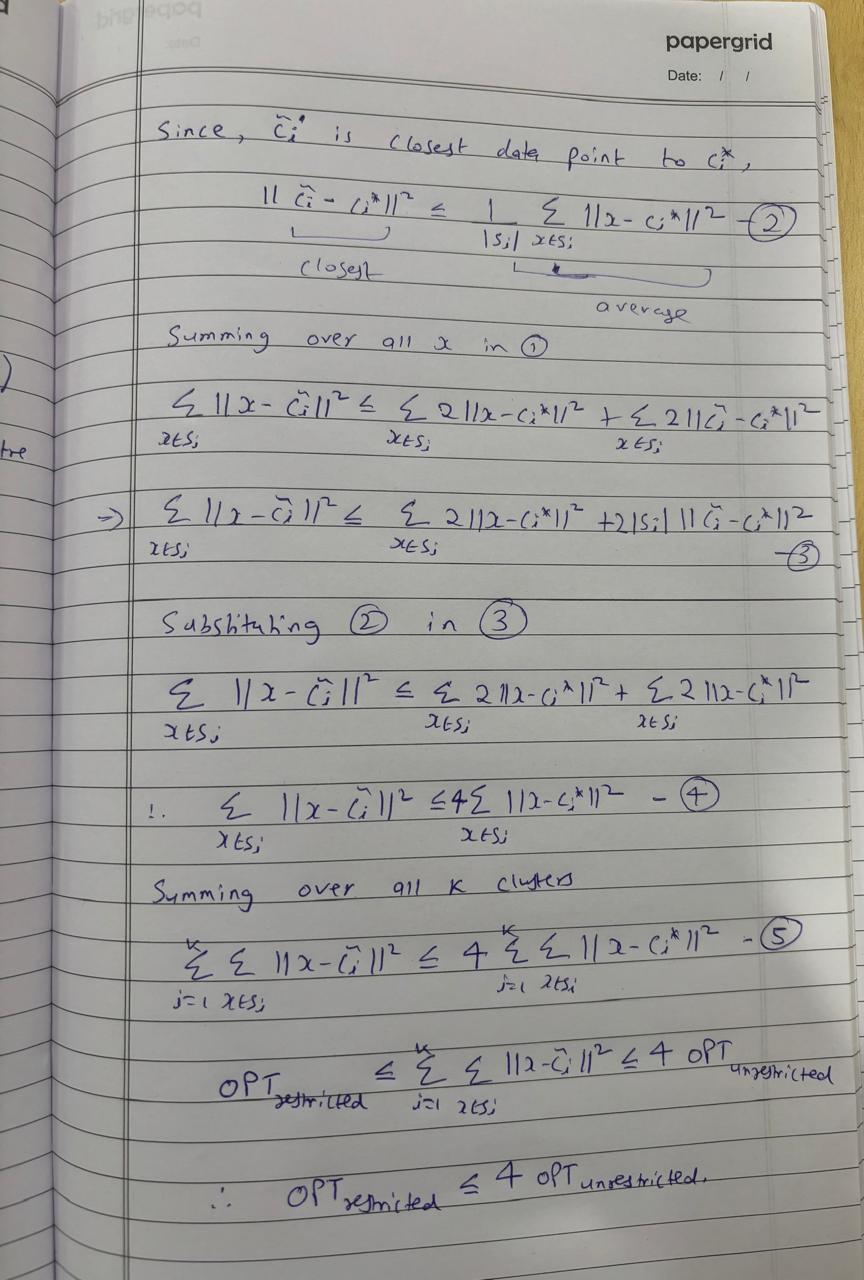 papergrid
Date: / /
Since, c̃ᵢ is closest data point to cᵢ*,
|| c̃ᵢ - cᵢ*||² ≤ 1/|Sᵢ| Σ_{x∈Sᵢ} ||x - cᵢ*||² - ②
closest
average
Summing over all x in ①
Σ_{x∈Sᵢ} ||x - c̃ᵢ||² ≤ Σ_{x∈Sᵢ} 2||x - cᵢ*||² + Σ_{x∈Sᵢ} 2||c̃ᵢ - cᵢ*||²
⇒ Σ_{x∈Sᵢ} ||x - c̃ᵢ||² ≤ Σ_{x∈Sᵢ} 2||x - cᵢ*||² + 2|Sᵢ| ||c̃ᵢ - cᵢ*||²
- ③
Substituting ② in ③
Σ_{x∈Sᵢ} ||x - c̃ᵢ||² ≤ Σ_{x∈Sᵢ} 2||x - cᵢ*||² + Σ_{x∈Sᵢ} 2||x - cᵢ*||²
∴ Σ_{x∈Sᵢ} ||x - c̃ᵢ||² ≤ 4Σ_{x∈Sᵢ} ||x - cᵢ*||² - ④
Summing over all K clusters
Σ_{i=1}^{K} Σ_{x∈Sᵢ} ||x - c̃ᵢ||² ≤ 4 Σ_{i=1}^{K} Σ_{x∈Sᵢ} ||x - cᵢ*||² - ⑤
OPT_restricted ≤ Σ_{i=1}^{K} Σ_{x∈Sᵢ} ||x - c̃ᵢ||² ≤ 4 OPT_unrestricted
∴ OPT_restricted ≤ 4 OPT_unrestricted.